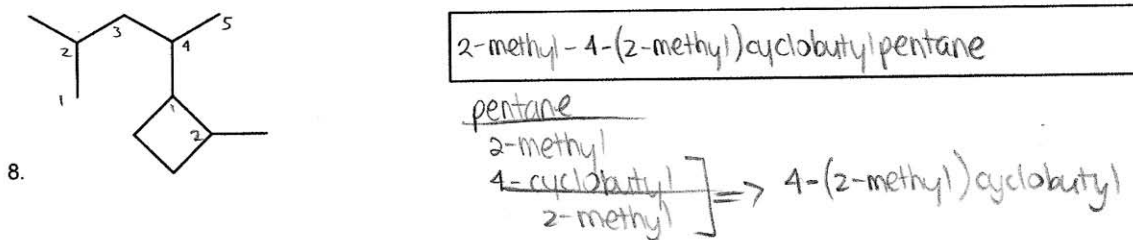 8.
2
3
4
5
1
1
2
2-methyl-4-(2-methyl)cyclobutylpentane
pentane
2-methyl
4-cyclobutyl
2-methyl
=> 4-(2-methyl)cyclobutyl